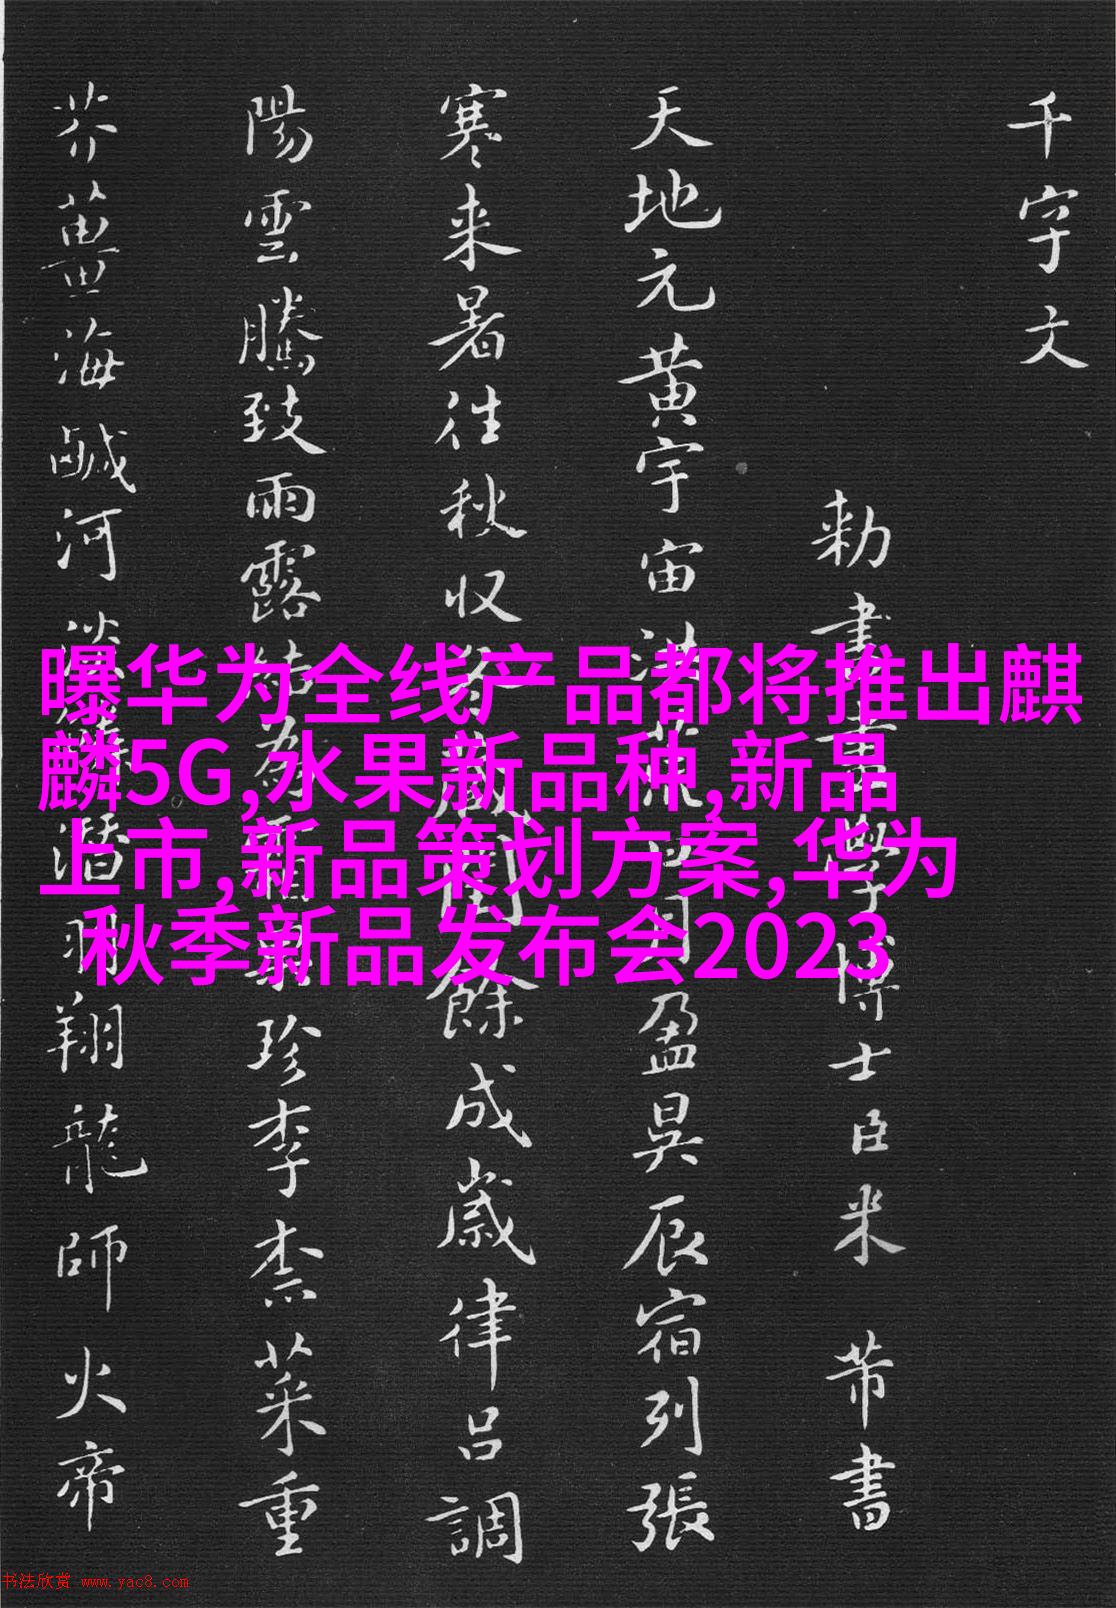 千字文
勅書畫學博士臣米芾書
天地元黄宇宙洪荒日月盈昃辰宿列張
寒来暑往秋収冬藏閏餘成嵗律吕調
陽雲騰致雨露結為霜果珍李柰菜重
芥薑海鹹河淡鱗潛羽翔龍師火帝
曝华为全线产品都将推出麒
麟5G,水果新品种,新品
上市,新品策划方案,华为
秋季新品发布会2023
书法欣赏 www.yac8.com